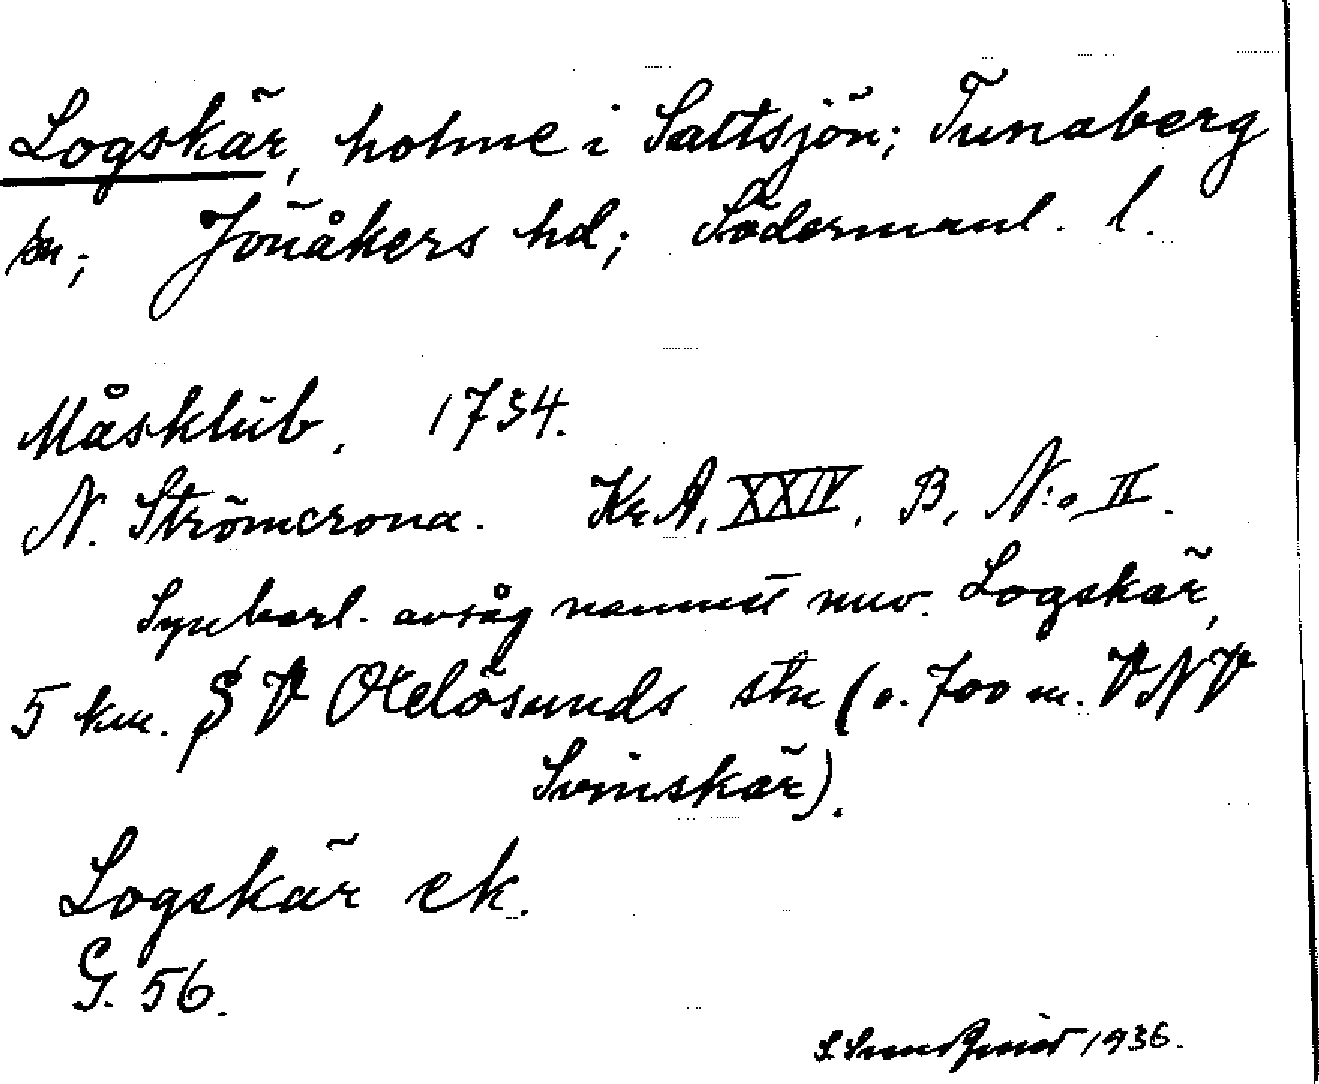 Logskär, holme i Saltsjön; Tunaberg
sn; Jönåkers hd; Södermanl. l.
Måsklub. 1734.
N. Strömcrona. Kr.A. XXIV. B, N:o II.
Synbarl. avsåg namnet nuv. Logskär,
5 km. S V Oxelösunds stn (c. 700 m. VNV
Svinskär).
Logskär ek.
G. 56.
1936.